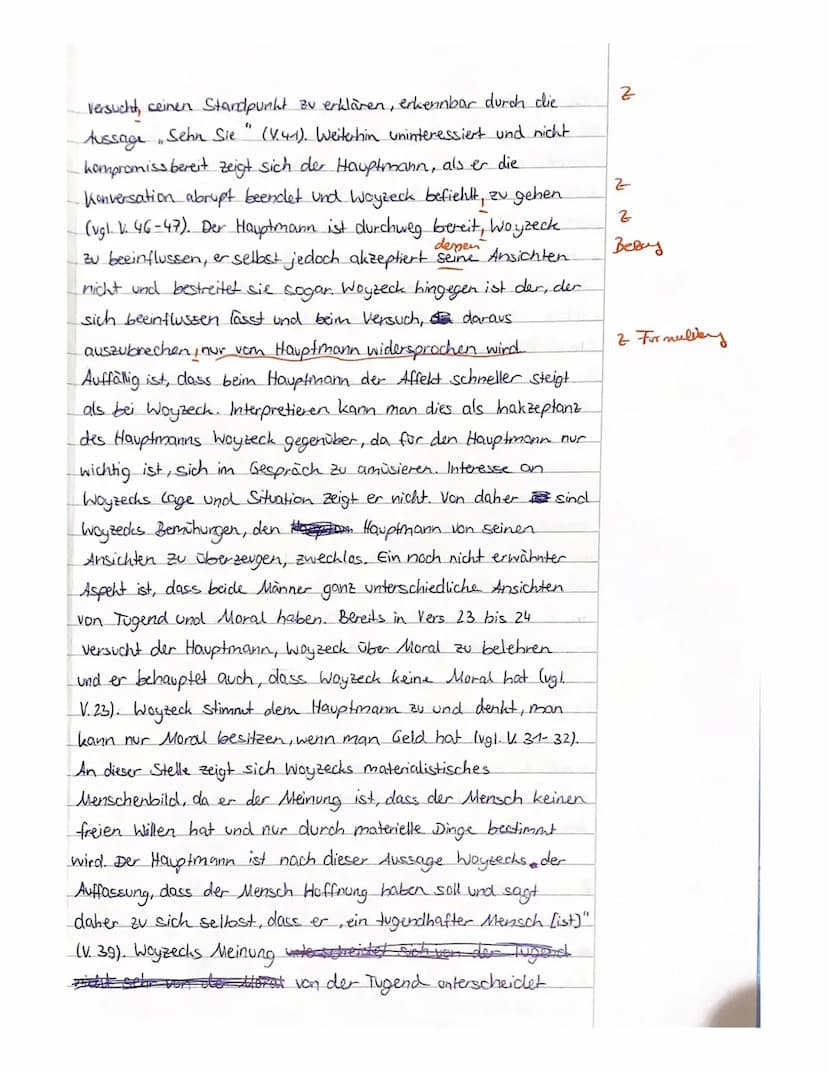 versucht, seinen Standpunkt zu erklären, erkennbar durch die Z
Aussage „Sehn Sie" (V.41). Weiterhin uninteressiert und nicht
kompromissbereit zeigt sich der Hauptmann, als er die
Konversation abrupt beendet und Woyzeck befiehlt, zu gehen Z
(vgl. V. 46-47). Der Hauptmann ist durchweg bereit, Woyzeck Z
dessen
zu beeinflussen, er selbst jedoch akzeptiert seine Ansichten Bezug
nicht und bestreitet sie sogar. Woyzeck hingegen ist der, der
sich beeinflussen lässt und beim Versuch, daraus
auszubrechen, nur vom Hauptmann widersprochen wird. Z Formulierung
Auffällig ist, dass beim Hauptmann der Affekt schneller steigt
als bei Woyzeck. Interpretieren kann man dies als Inakzeptanz
des Hauptmanns Woyzeck gegenüber, da für den Hauptmann nur
wichtig ist, sich im Gespräch zu amüsieren. Interesse an
Woyzecks Lage und Situation zeigt er nicht. Von daher sind
Woyzecks Bemühungen, den Hauptmann von seinen
Ansichten zu überzeugen, zwecklos. Ein noch nicht erwähnter
Aspekt ist, dass beide Männer ganz unterschiedliche Ansichten
von Tugend und Moral haben. Bereits in Vers 23 bis 24
versucht der Hauptmann, Woyzeck über Moral zu belehren
und er behauptet auch, dass Woyzeck keine Moral hat (vgl.
V. 23). Woyzeck stimmt dem Hauptmann zu und denkt, man
kann nur Moral besitzen, wenn man Geld hat (vgl. V. 31-32).
An dieser Stelle zeigt sich Woyzecks materialistisches
Menschenbild, da er der Meinung ist, dass der Mensch keinen
freien Willen hat und nur durch materielle Dinge bestimmt
wird. Der Hauptmann ist nach dieser Aussage Woyzecks der
Auffassung, dass der Mensch Hoffnung haben soll und sagt
daher zu sich selbst, dass er „ein tugendhafter Mensch [ist]"
(V. 39). Woyzecks Meinung unterscheidet sich von der Tugend
nicht sehr von der Moral von der Tugend unterscheidet